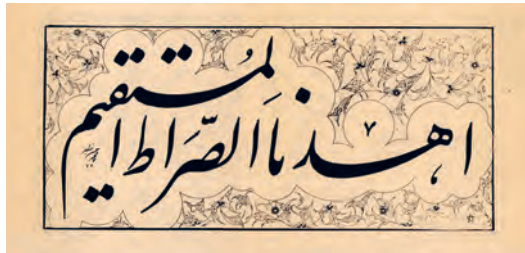 اهدنا الصّراط المُستقیم
۷